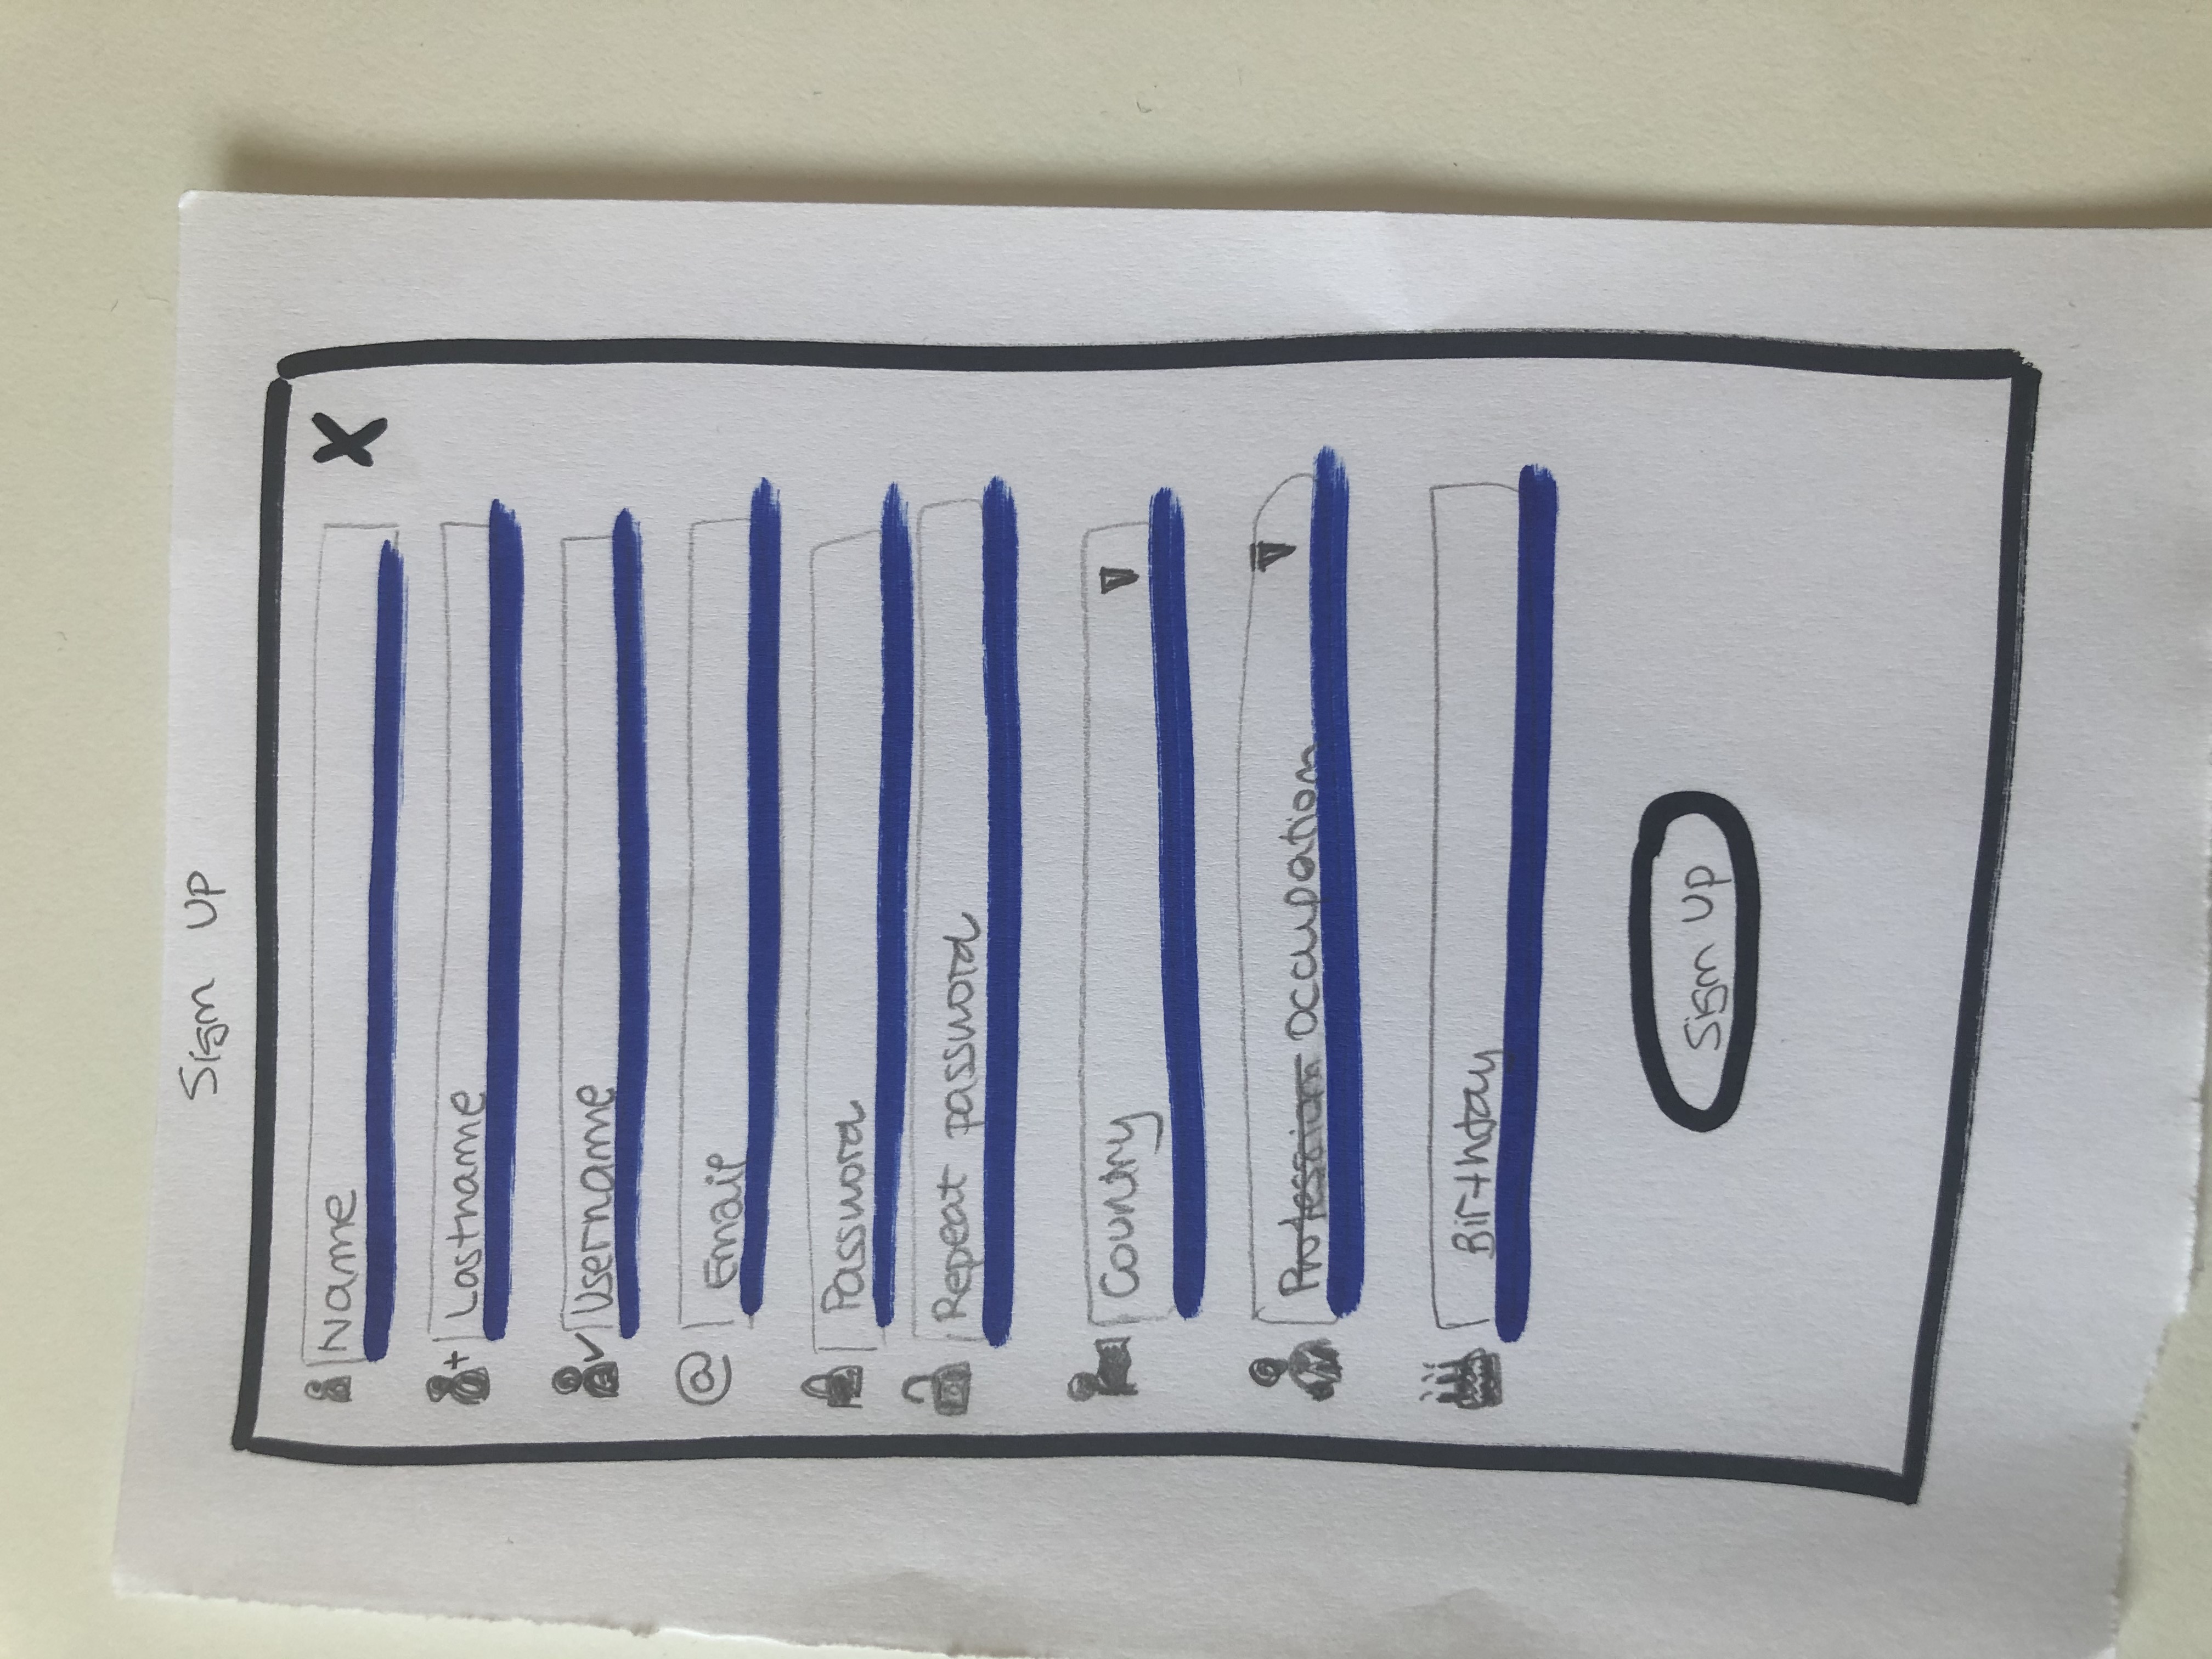 Sign Up
X
Name
Lastname
Username
@ Email
Password
Repeat password
Country
Profession Occupation
Birthday
Sign Up